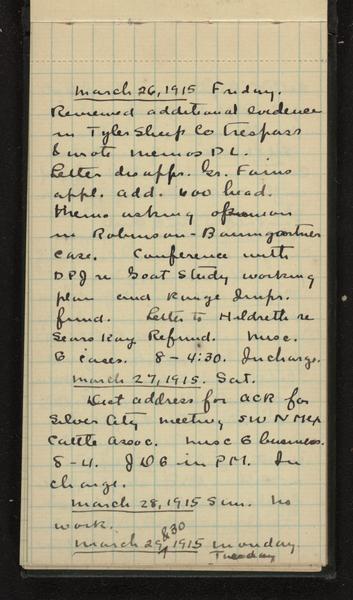 March 26, 1915 Friday.
Reviewed additional evidence
in Tyler Sheep Co trespass
& wrote memos DL.
Letter disappr. Gr.
appl. add. 600 head.
Memo asking opinion
in Robinson-Baumgartner
case. Conference with
DPJ re Goat Study working
plan and Range Impr.
fund. Letter to Hildreth re
Sears Kay Refund. Misc.
G cases. 8-4:30. In charge.
March 27, 1915. Sat.
Dict address for ACR for
Silver City meeting SW N Mex
Cattle Assoc. Misc G business.
8-4. JDG in PM. In
charge.
March 28, 1915 Sun. No
work.
March 29 & 30, 1915 Monday
Tuesday